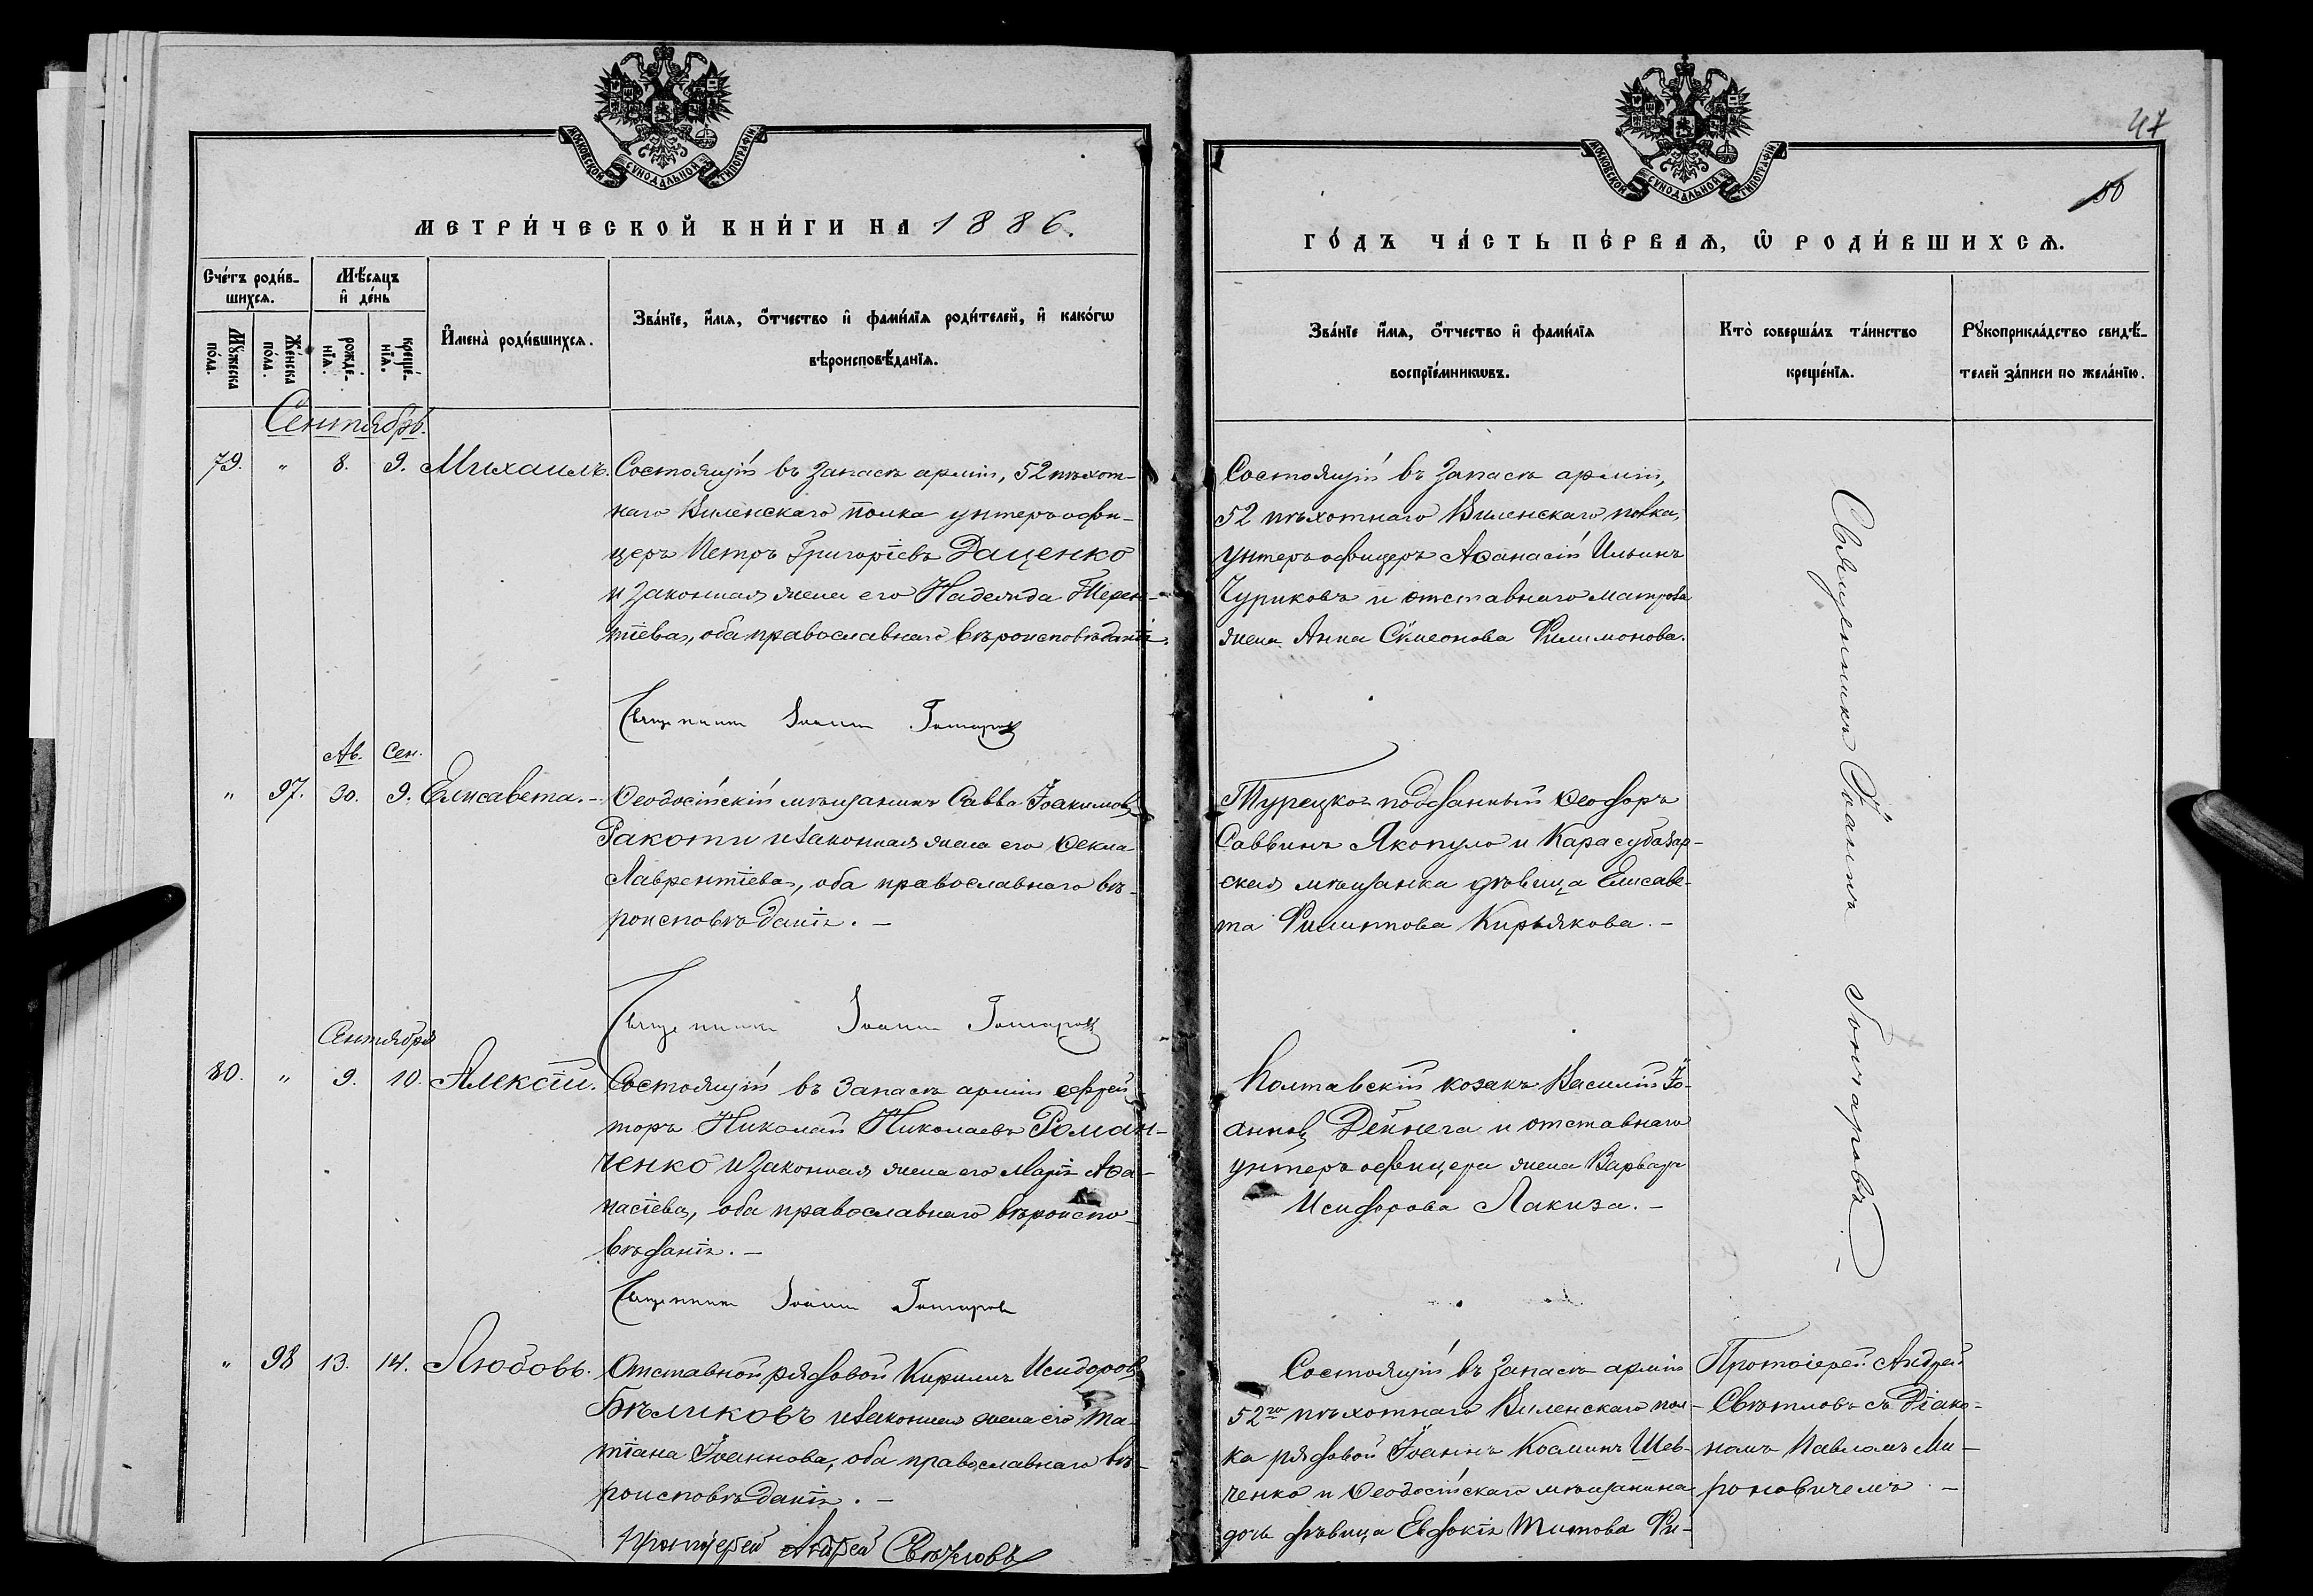 МОСКОВСКОЙ СѴНОДАЛЬНОЙ ТИПОГРАФІИ
МЕТРИ́ЧЕСКОЙ КНИ́ГИ НА 1886.
Сче́тъ роди́в-
шихсѧ.
Мѣ́сѧцъ
и҆ де́нь
Мꙋ́жеска
по́ла.
Же́нска
по́ла.
рожде́-
нїѧ.
креще́-
нїѧ.
И҆мена̀ роди́вшихсѧ.
Зва́нїе, и҆́мѧ, ѻ҆́тчество и҆ фами́лїѧ роди́телей, и҆ како́гѡ
вѣроисповѣ́данїѧ.
Сентябрь.
79. " 8. 9. Михаилъ.
Состоящій въ запасѣ арміи, 52 пѣхот-
наго Виленскаго полка унтеръ офи-
церъ Петръ Григоріевъ Даценко
и законная жена его Надежда Терен-
тіева, оба православнаго вѣроисповѣданія.
Священникъ Іоаннъ Гончаровъ
Ав. Сен.
" 97. 30. 9. Елисавета.-
Ѳеодосійскій мѣщанинъ Савва Іоакимовъ
Ракоти и законная жена его Ѳекла
Лаврентіева, оба православнаго вѣ-
роисповѣданія. —
Священникъ Іоаннъ Гончаровъ
Сентября
80. " 9. 10. Алексій.
Состоящій въ запасѣ арміи ефрей-
торъ Николай Николаевъ Роман-
ченко и законная жена его Марія Аѳа-
насіева, оба православнаго вѣроиспо-
вѣданія. —
Священникъ Іоаннъ Гончаровъ
" 98 13. 14. Любовь.
Отставной рядовой Кириллъ Исидоровъ
Бѣликовъ и законная жена его Та-
тіана Іоаннова, оба православнаго вѣ-
роисповѣданія. —
Протоіерей Андрей Свѣтловъ
47
50
МОСКОВСКОЙ СѴНОДАЛЬНОЙ ТИПОГРАФІИ
ГО́ДЪ ЧА́СТЬ ПЕ́РВАѦ, Ѡ҆ РОДИ́ВШИХСѦ.
Зва́нїе и҆́мѧ, ѻ҆́тчество и҆ фами́лїѧ
воспрїе́мникѡвъ.
Кто̀ соверша́лъ та́инство
креще́нїѧ.
Рꙋкоприкла́дство свидѣ́-
телей за́писи по жела́нїю.
Состоящій въ запасѣ арміи,
52 пѣхотнаго Виленскаго полка,
унтеръ офицеръ Аѳанасій Ильинъ
Чуриковъ и отставнаго матроса
жена Анна Симеонова Филимонова.
Турецко подданный Ѳеодоръ
Саввинъ Якопуло и Карасубазар-
ская мѣщанка дѣвица Елисаве-
та Филиппова Кирьякова. —
Полтавскій козакъ Василій Іо-
анновъ Дейнега и отставнаго
унтеръ офицера жена Варвара
Исидорова Лакиза. —
Священникъ Іоаннъ Гончаровъ. —
Состоящій въ запасѣ арміи
52го пѣхотнаго Виленскаго пол-
ка рядовой Іоаннъ Косминъ Шев-
ченко и Ѳеодосійскаго мѣщанина
дочь дѣвица Евдокія Титова Фи-
Протоіерей Андрей
Свѣтловъ съ Діако-
номъ Павломъ Ми-
роновичемъ. —